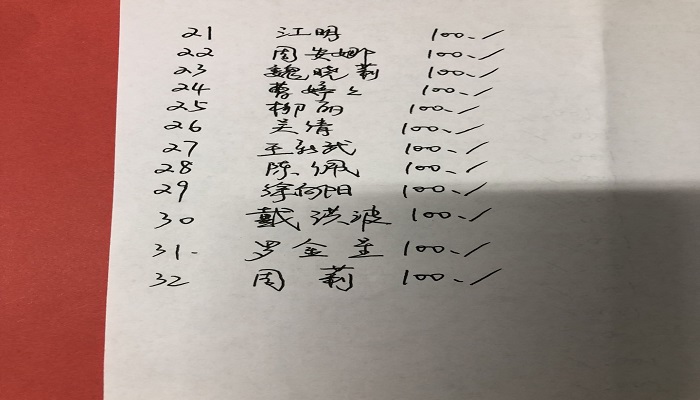 21 江明 100.✓
22 周安娜 100.✓
23 魏晓莉 100.✓
24 曹婷之 100.✓
25 柳丽 100.✓
26 吴倩 100.✓
27 王新武 100.✓
28 陈佩 100.✓
29 徐向阳 100.✓
30 戴洪波 100.✓
31. 罗金 100.✓
32 周莉 100.✓